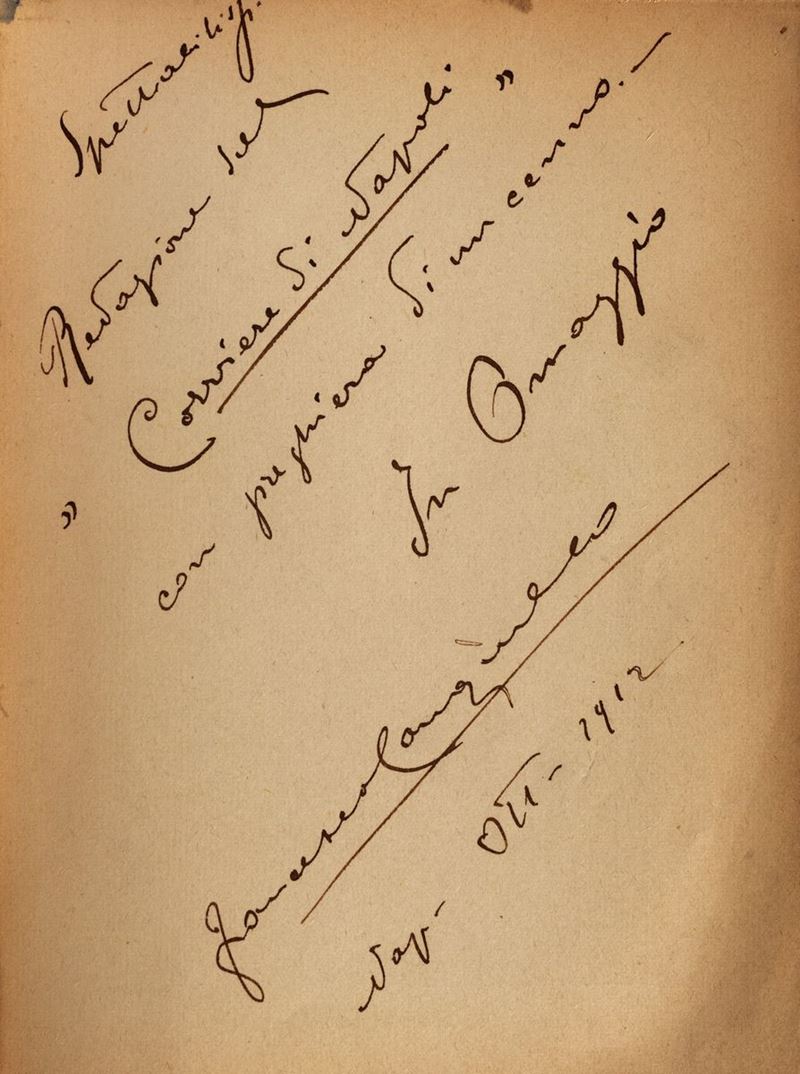 Spettabiliss.
Redazione del
„ Corriere di Napoli „
con preghiera di un cenno. —
In Omaggio
Francesco
Nap- Ott- 1912